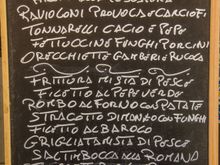 RAVIOLONI PROVOLA E CARCIOFI
TONNARELLI CACIO E PEPE
FETTUCCINE FUNGHI PORCINI
ORECCHIETTE GAMBERI E RUCOLA
FRITTURA MISTA DI PESCE
FILETTO AL PEPE VERDE
ROMBO AL FORNO CON PATATE
STRACOTTO DI MANZO CON FUNGHI
FILETTO AL BAROLO
GRIGLIATA MISTA DI PESCE
SALTIMBOCCA ALLA ROMANA